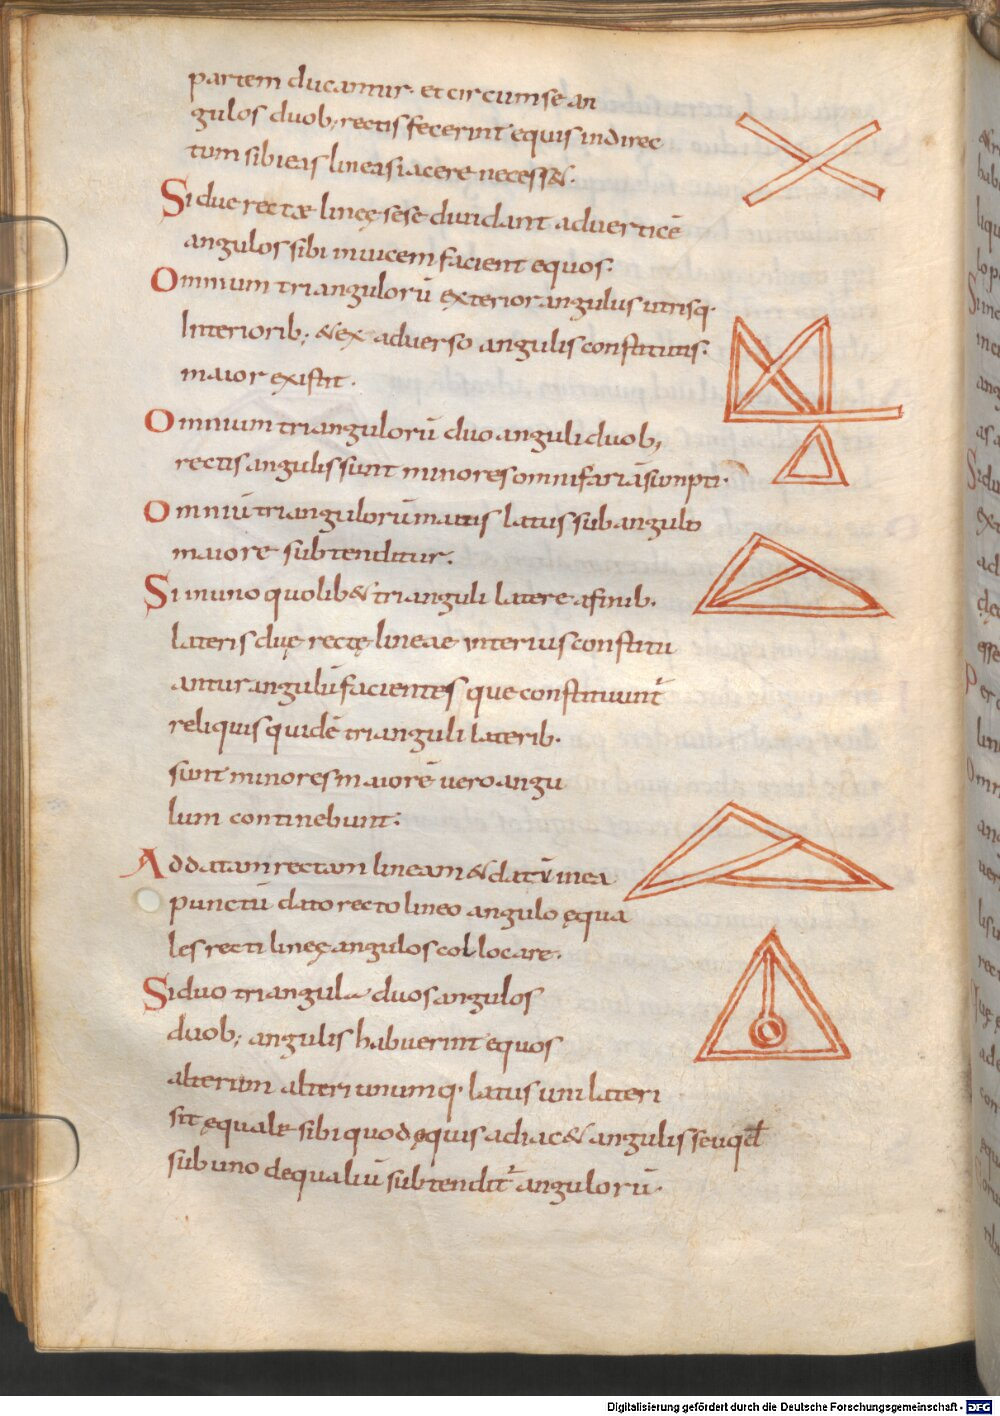 partem ducantur. et circum se an
gulos duob; rectis fecerint equis indirec
tum sibi eas lineas iacere necesse;.
Si due rectæ lineę sese diuidant ad uerticē
angulos sibi inuicem facient equos.
Omnium triangulorū exterior angulus utrisq.
Interiorib; & ex aduerso angulis constitutis.
maior existit.
Omnium triangulorū duo anguli duob;
rectis angulis sunt minores omnifariā sumpti.
Omniū triangulorū maius latus sub angulo
maiore subtenditur.
Si in uno quolib& trianguli latere a finib.
lateris duę rectę lineae interius constitu
antur angulū facientes que constituunt̄
reliquis quidē trianguli laterib.
sunt minores maiorē uero angu
lum continebunt:
Ad datam rectam lineam & datū in ea
punctū dato recto lineo angulo ęqua
les recti lineę angulos collocare.
Si duo triangula duos angulos
duob; angulis habuerint equos
alterum alteri unumq. latus uni lateri
sit ęquale sibi quod ęquis adiac& angulis seu qđ
sub uno equaliū subtendit̄ angulorū.
Digitalisierung gefördert durch die Deutsche Forschungsgemeinschaft - DFG